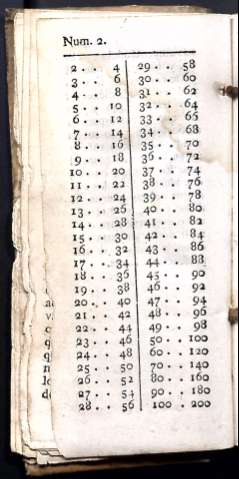 Num. 2.
2 . . 4
3 . . 6
4 . . 8
5 . . 10
6 . . 12
7 . . 14
8 . . 16
9 . . 18
10 . . 20
11 . . 22
12 . . 24
13 . . 26
14 . . 28
15 . . 30
16 . . 32
17 . . 34
18 . . 36
19 . . 38
20 . . 40
21 . . 42
22 . . 44
23 . . 46
24 . . 48
25 . . 50
26 . . 52
27 . . 54
28 . . 56
29 . . 58
30 . . 60
31 . . 62
32 . . 64
33 . . 66
34 . . 68
35 . . 70
36 . . 72
37 . . 74
38 . . 76
39 . . 78
40 . . 80
41 . . 82
42 . . 84
43 . . 86
44 . . 88
45 . . 90
46 . . 92
47 . . 94
48 . . 96
49 . . 98
50 . . 100
60 . . 120
70 . . 140
80 . . 160
90 . . 180
100 . . 200